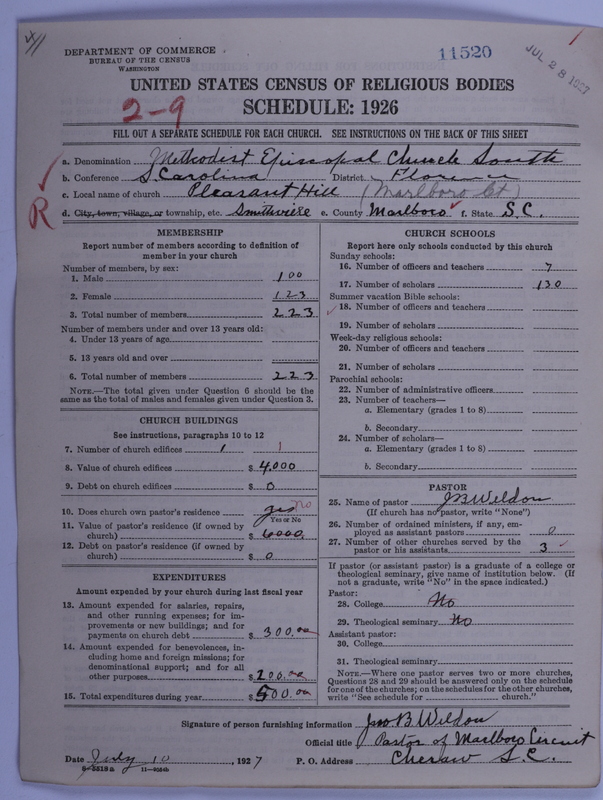 DEPARTMENT OF COMMERCE
BUREAU OF THE CENSUS
WASHINGTON
11520
JUL 28 1927
UNITED STATES CENSUS OF RELIGIOUS BODIES
2-9
SCHEDULE: 1926
FILL OUT A SEPARATE SCHEDULE FOR EACH CHURCH. SEE INSTRUCTIONS ON THE BACK OF THIS SHEET
a. Denomination Methodist Episcopal Church South
b. Conference S. Carolina District Florence
c. Local name of church Pleasant Hill (Marlboro Ct)
R
d. City, town, village, or township, etc. Smithville e. County Marlboro f. State S.C.
MEMBERSHIP
Report number of members according to definition of member in your church
Number of members, by sex:
1. Male 100
2. Female 123
3. Total number of members 223
Number of members under and over 13 years old:
4. Under 13 years of age
5. 13 years old and over
6. Total number of members 223
NOTE.—The total given under Question 6 should be the same as the total of males and females given under Question 3.
CHURCH BUILDINGS
See instructions, paragraphs 10 to 12
7. Number of church edifices 1 1
8. Value of church edifices $ 4,000
9. Debt on church edifices $ 0
10. Does church own pastor's residence yes no
Yes or No
11. Value of pastor's residence (if owned by church) $ 6000.
12. Debt on pastor's residence (if owned by church) $ 0
EXPENDITURES
Amount expended by your church during last fiscal year
13. Amount expended for salaries, repairs, and other running expenses; for improvements or new buildings; and for payments on church debt $ 300.00
14. Amount expended for benevolences, including home and foreign missions; for denominational support; and for all other purposes $ 200.00
15. Total expenditures during year $ 500.00
CHURCH SCHOOLS
Report here only schools conducted by this church
Sunday schools:
16. Number of officers and teachers 7
17. Number of scholars 130
Summer vacation Bible schools:
18. Number of officers and teachers
19. Number of scholars
Week-day religious schools:
20. Number of officers and teachers
21. Number of scholars
Parochial schools:
22. Number of administrative officers
23. Number of teachers—
a. Elementary (grades 1 to 8)
b. Secondary
24. Number of scholars—
a. Elementary (grades 1 to 8)
b. Secondary
PASTOR
25. Name of pastor J B Weldon
(If church has no pastor, write "None")
26. Number of ordained ministers, if any, employed as assistant pastors 0
27. Number of other churches served by the pastor or his assistants 3
If pastor (or assistant pastor) is a graduate of a college or theological seminary, give name of institution below. (If not a graduate, write "No" in the space indicated.)
Pastor:
28. College No
29. Theological seminary No
Assistant pastor:
30. College
31. Theological seminary
NOTE.—Where one pastor serves two or more churches, Questions 28 and 29 should be answered only on the schedule for one of the churches; on the schedules for the other churches, write "See schedule for church."
Signature of person furnishing information Jno B. Weldon
Official title Pastor of Marlboro Circuit
Date July 10, 1927 P. O. Address Cheraw S.C.